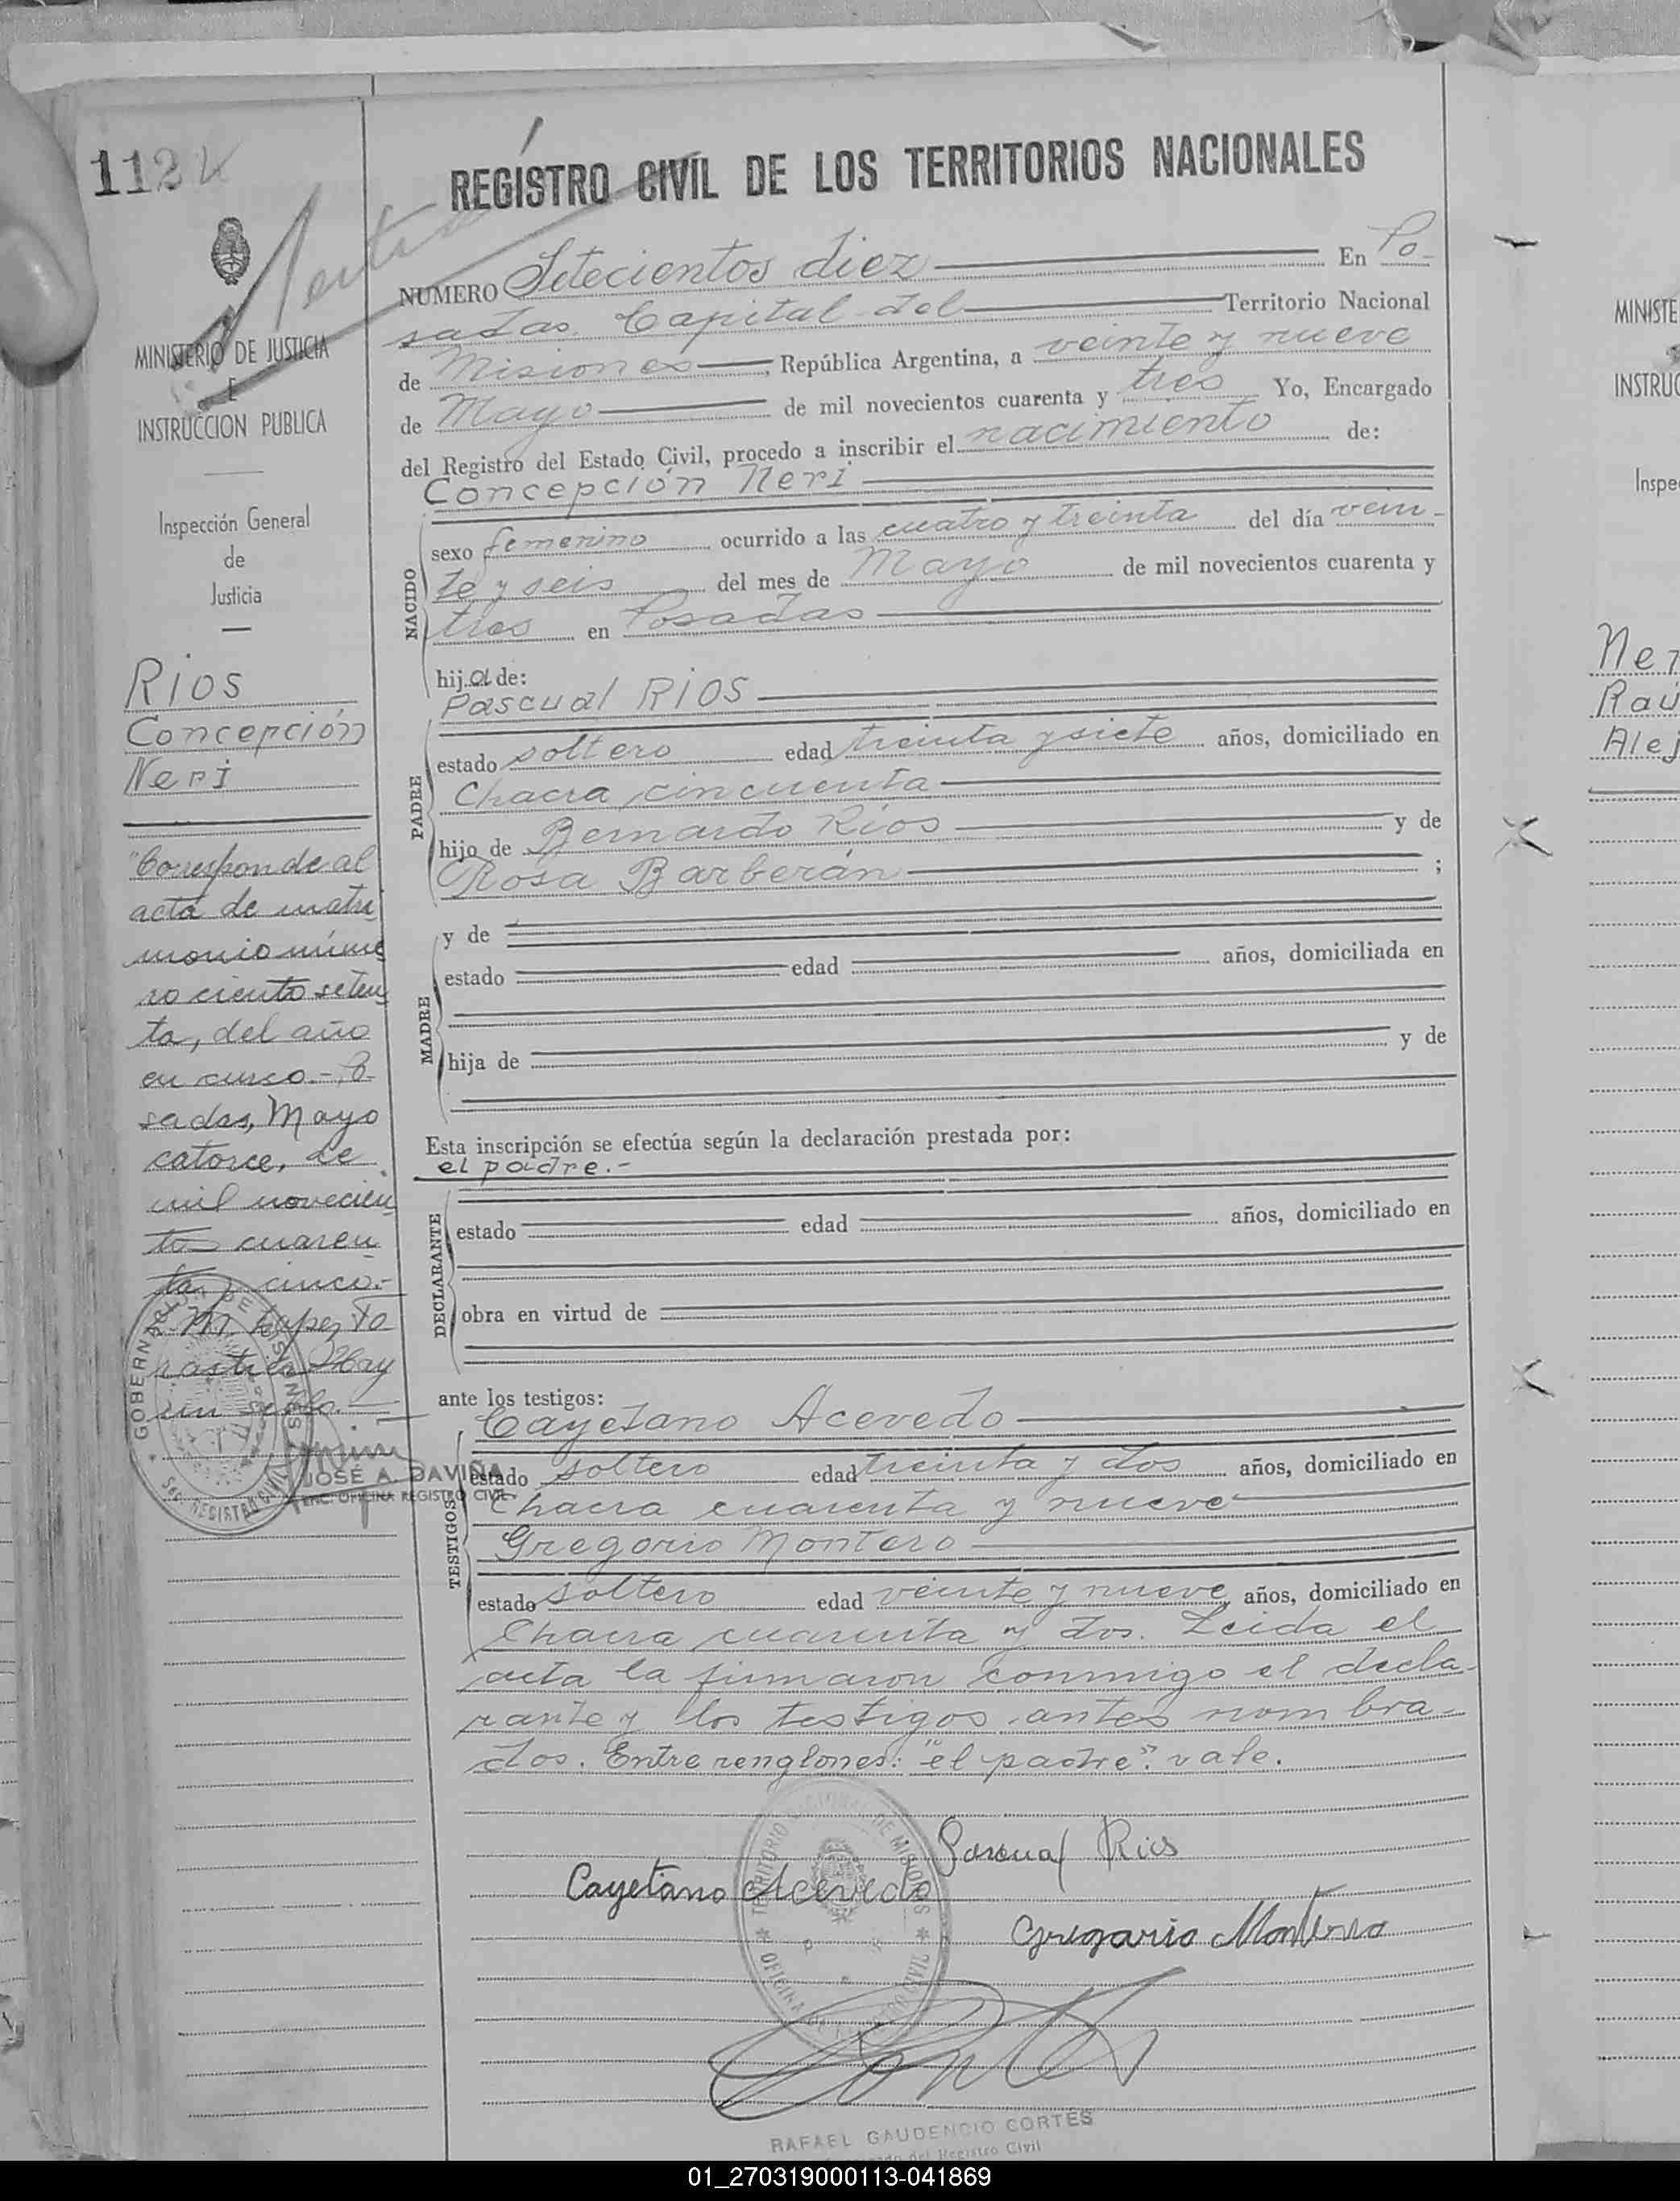 1124
MINISTERIO DE JUSTICIA
E
INSTRUCCION PUBLICA
Inspección General
de
Justicia
Rios
Concepción
Neri
"Corresponde al
acta de matri
monio núme
ro ciento seten
ta, del año
en curso.- Po
sadas, Mayo
catorce, de
mil novecien
tos cuaren
ta y cinco.-
M. Lopez To
rrastre Hay
un sello.-
JOSÉ A. DAVIÑA
ENC. OFICINA REGISTRO CIVIL
REGISTRO CIVIL DE LOS TERRITORIOS NACIONALES
NUMERO Setecientos diez En Po-
sadas. Capital del Territorio Nacional
de Misiones, República Argentina, a veinte y nueve
de Mayo de mil novecientos cuarenta y tres Yo, Encargado
del Registro del Estado Civil, procedo a inscribir el nacimiento de:
Concepción Neri
NACIDO
sexo femenino ocurrido a las cuatro y treinta del día vein-
te y seis del mes de Mayo de mil novecientos cuarenta y
tres en Posadas
hija de:
Pascual RIOS
PADRE
estado soltero edad treinta y siete años, domiciliado en
Chacra cincuenta
hijo de Bernardo Rios y de
Rosa Barberán ;
MADRE
y de
estado edad años, domiciliada en
hija de y de
Esta inscripción se efectúa según la declaración prestada por:
el padre.-
DECLARANTE
estado edad años, domiciliado en
obra en virtud de
ante los testigos:
Cayetano Acevedo
TESTIGOS
estado soltero edad treinta y dos años, domiciliado en
Chacra cuarenta y nueve
Gregorio Montero
estado soltero edad veinte y nueve años, domiciliado en
Chacra cuarenta y dos. Leida el
acta la firmaron conmigo el decla-
rante y los testigos antes nombra-
dos. Entre renglones: "el padre". vale.
Pascual Rios
Cayetano Acevedo
Gregorio Montero
TERRITORIO NACIONAL DE MISIONES
RAFAEL GAUDENCIO CORTÉS
Encargado del Registro Civil
MINISTE
INSTRUC
Inspe
Ner
Raú
Alej
01_270319000113-041869